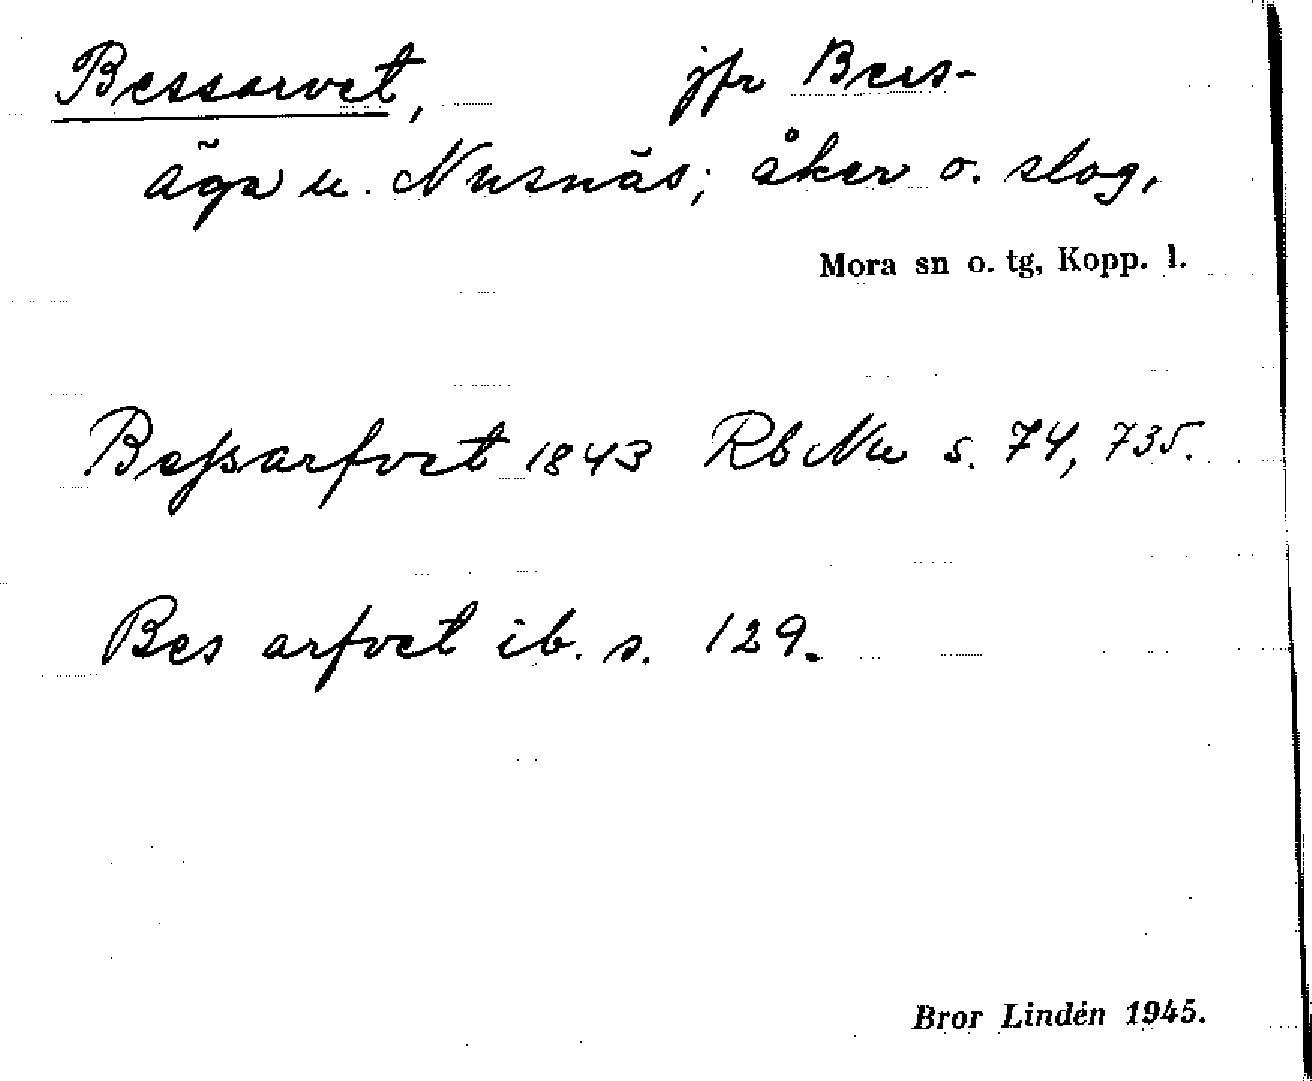 Bessarvet, jfr Bers-
äga u. Nusnäs; åker o. slog,
Mora sn o. tg, Kopp. l.
Beſsarfvet 1843 RbNu s. 74, 735.
Bes arfvet ib. s. 129.
Bror Lindén 1945.